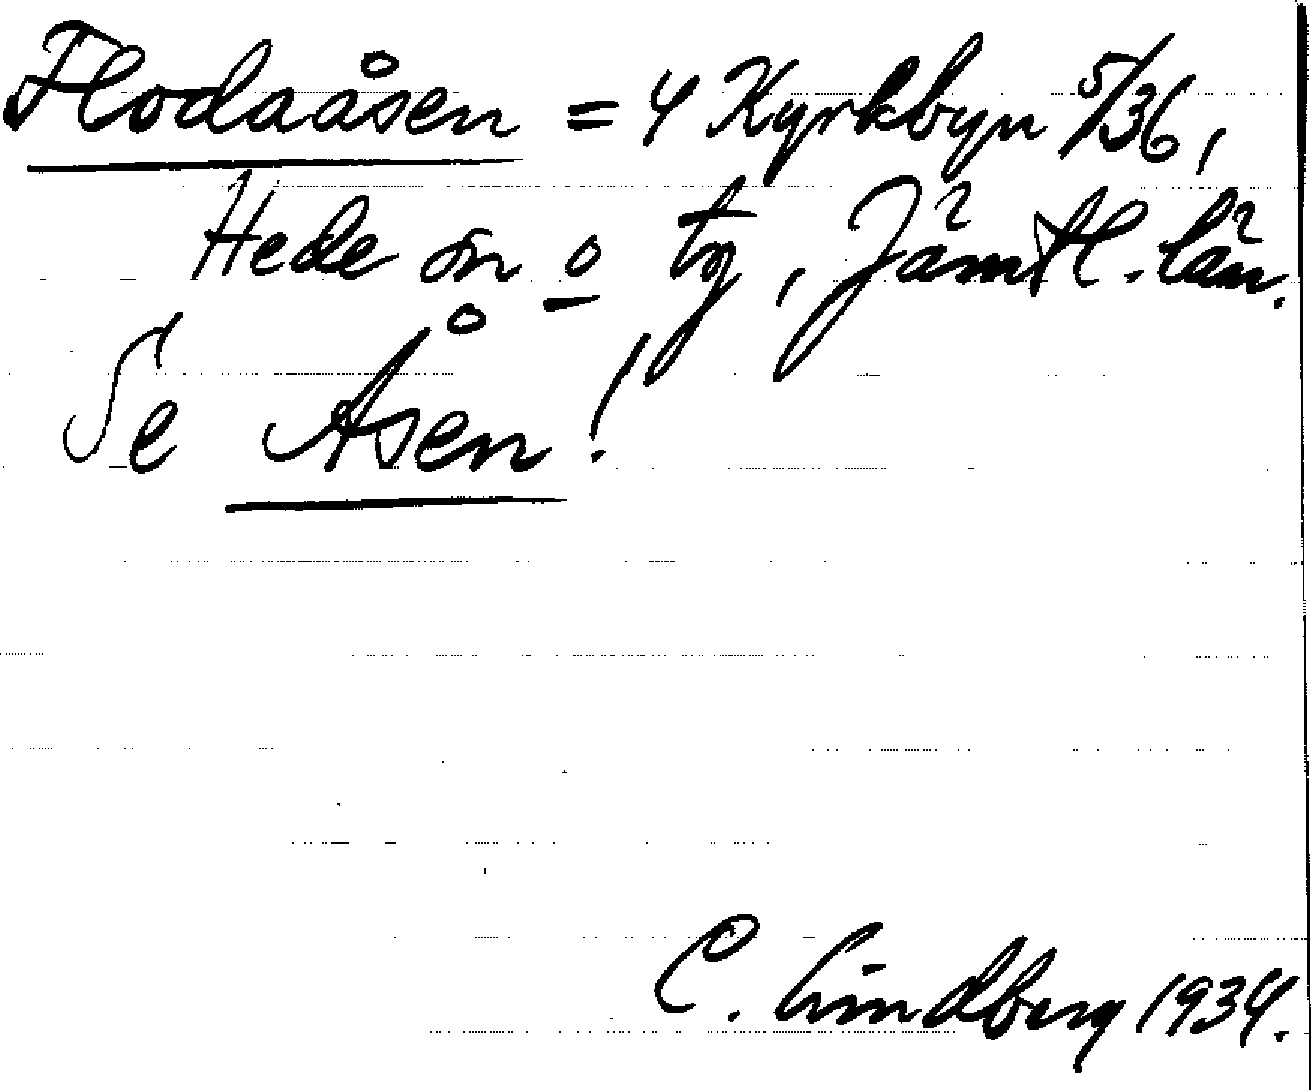 Flodaåsen = 4 Kyrkbyn 5/36,
Hede sn o tg, Jämtl. län.
Se Åsen!
C. Lindberg 1934.